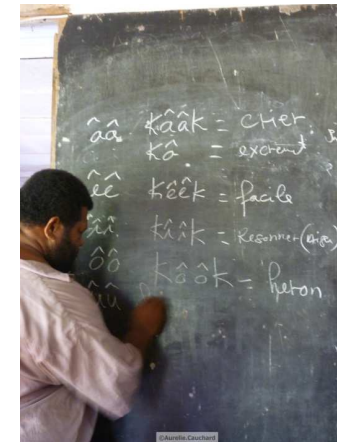 ââ kââk = crier
kâ = excrement
êê kêêk = facile
îî kîîk = Resonner (crise)
ôô kôôk = heron
ûû
©Aurelie.Cauchard